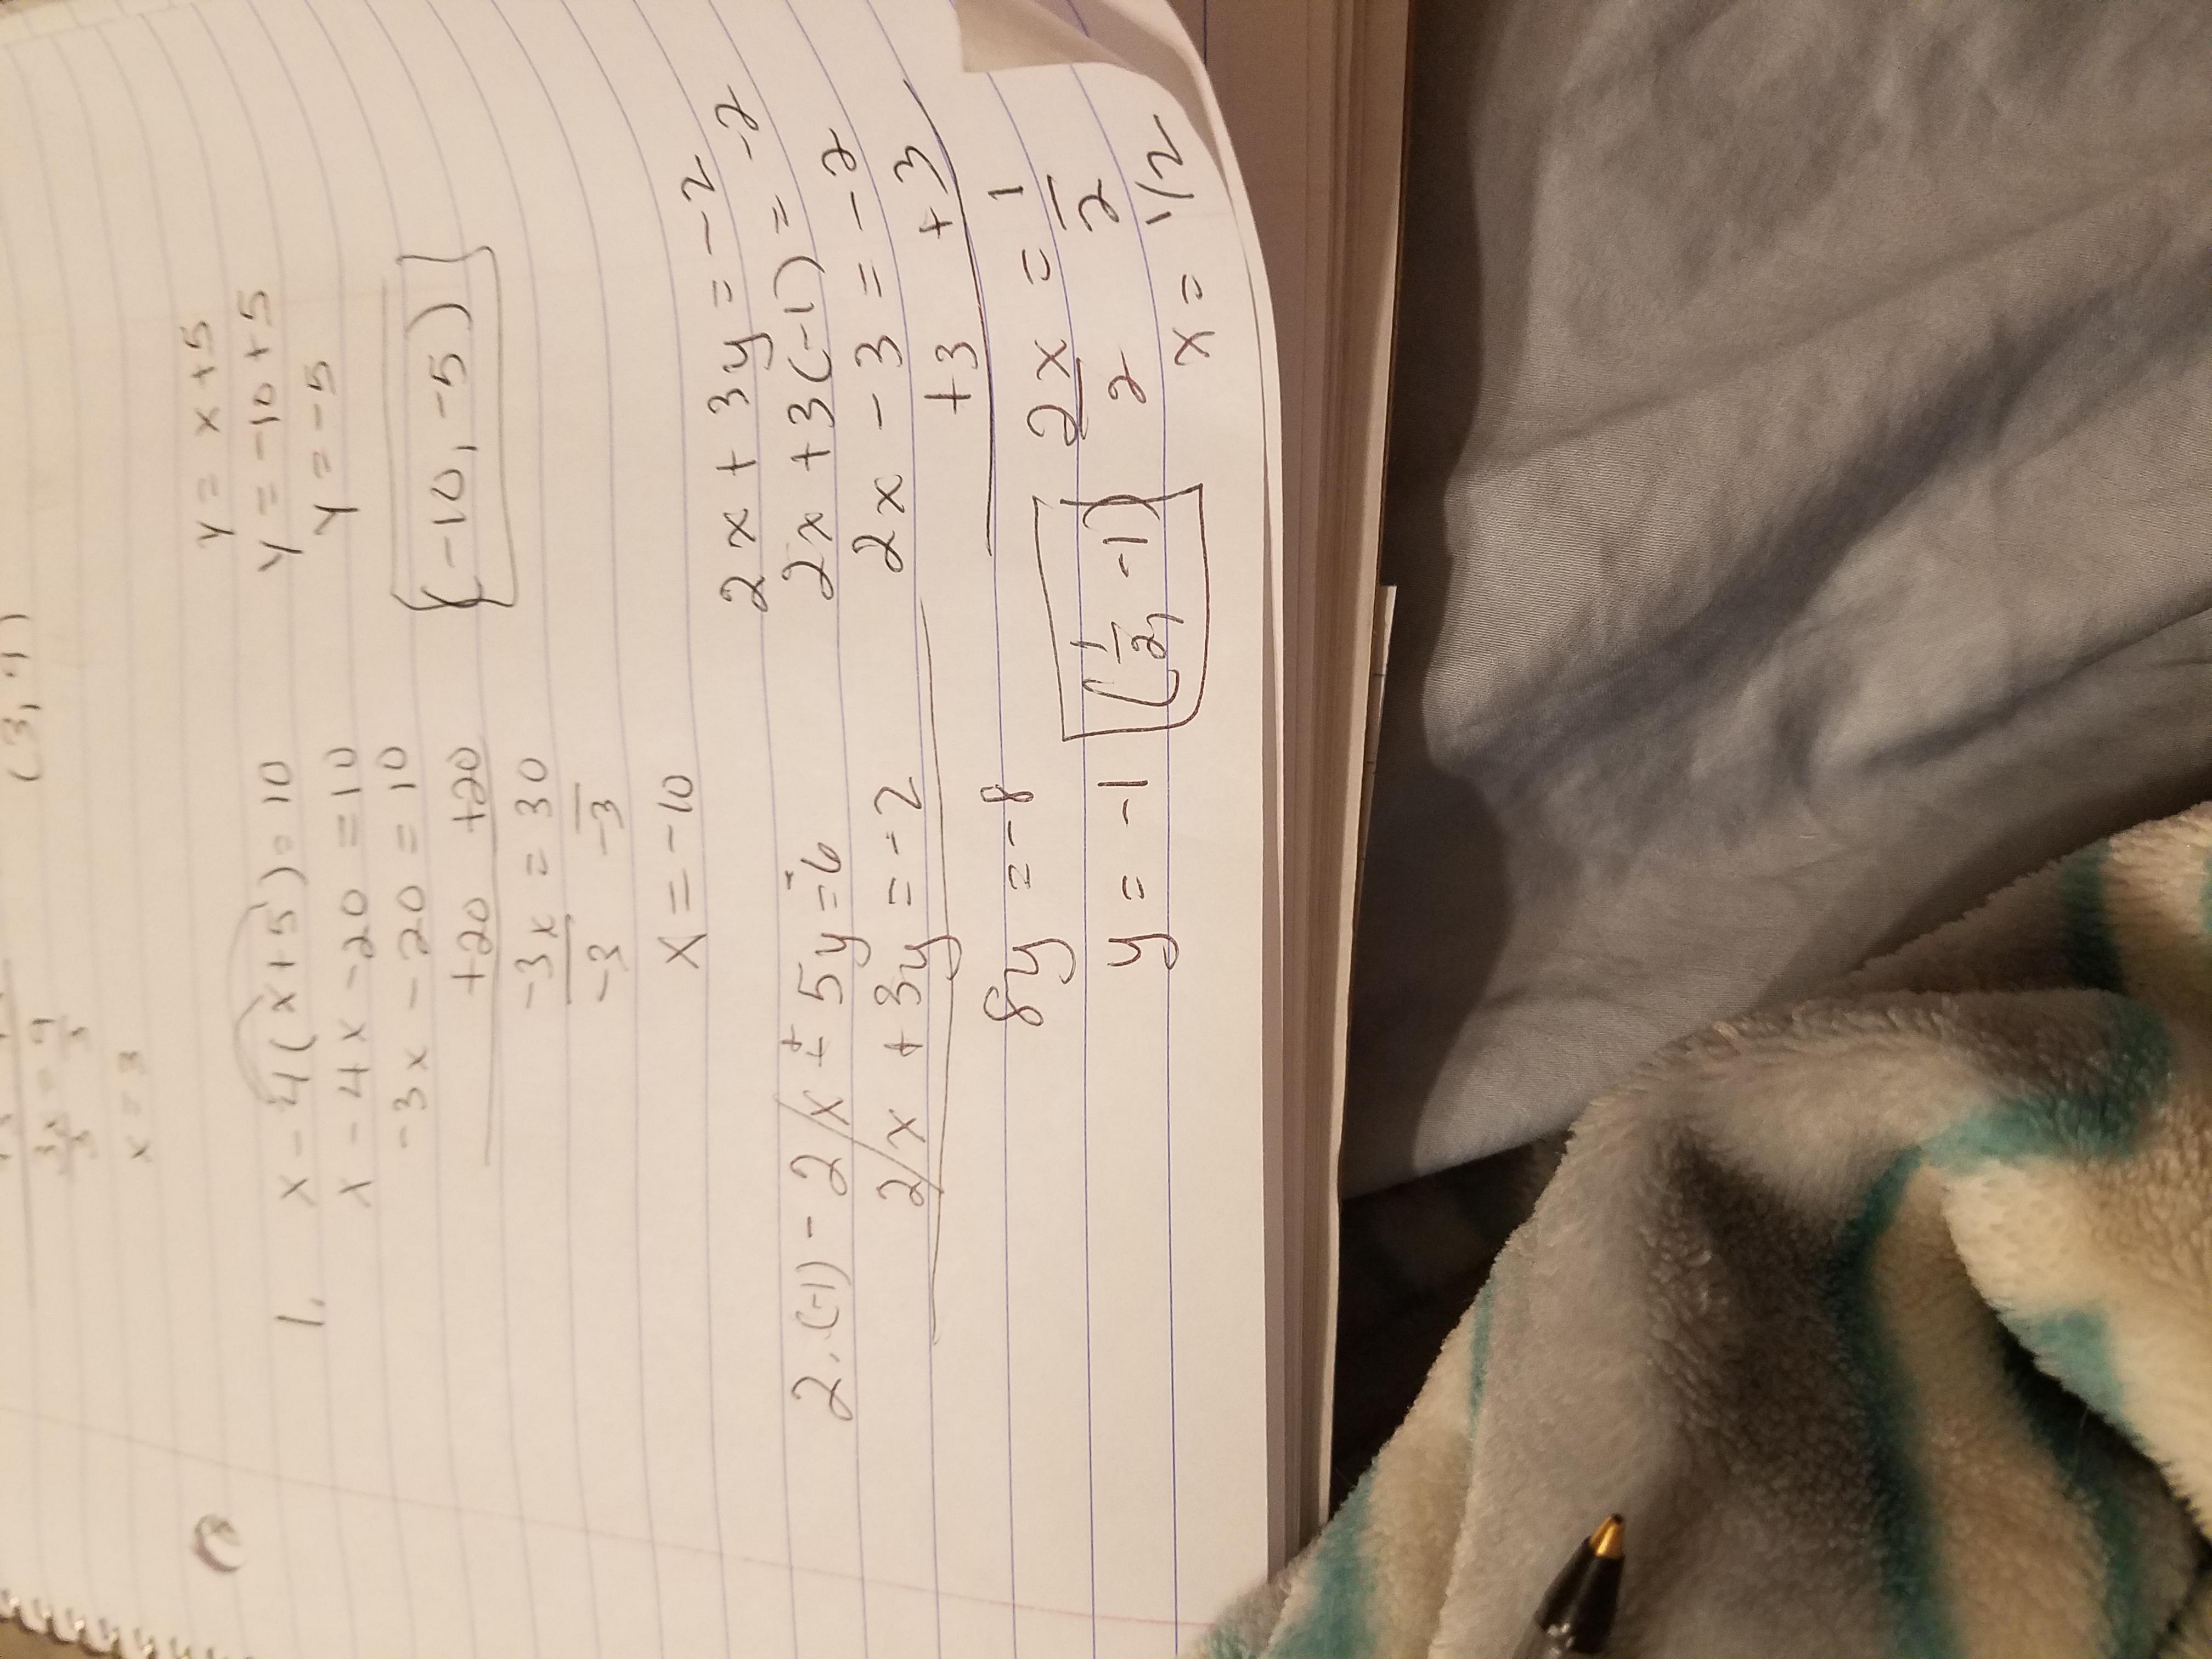 (3, 9)
3x = 9
3 3
x = 3
1. x - 4(x+5) = 10
x - 4x - 20 = 10
-3x - 20 = 10
+20 +20
-3x = 30
-3 -3
x = -10
y = x + 5
y = -10 + 5
y = -5
(-10, -5)
2. (-1) - 2x + 5y = -6
2x + 3y = -2
8y = -8
y = -1
2x + 3y = -2
2x + 3(-1) = -2
2x - 3 = -2
+3 +3
2x = 1
2 2
x = 1/2
(1/2, -1)